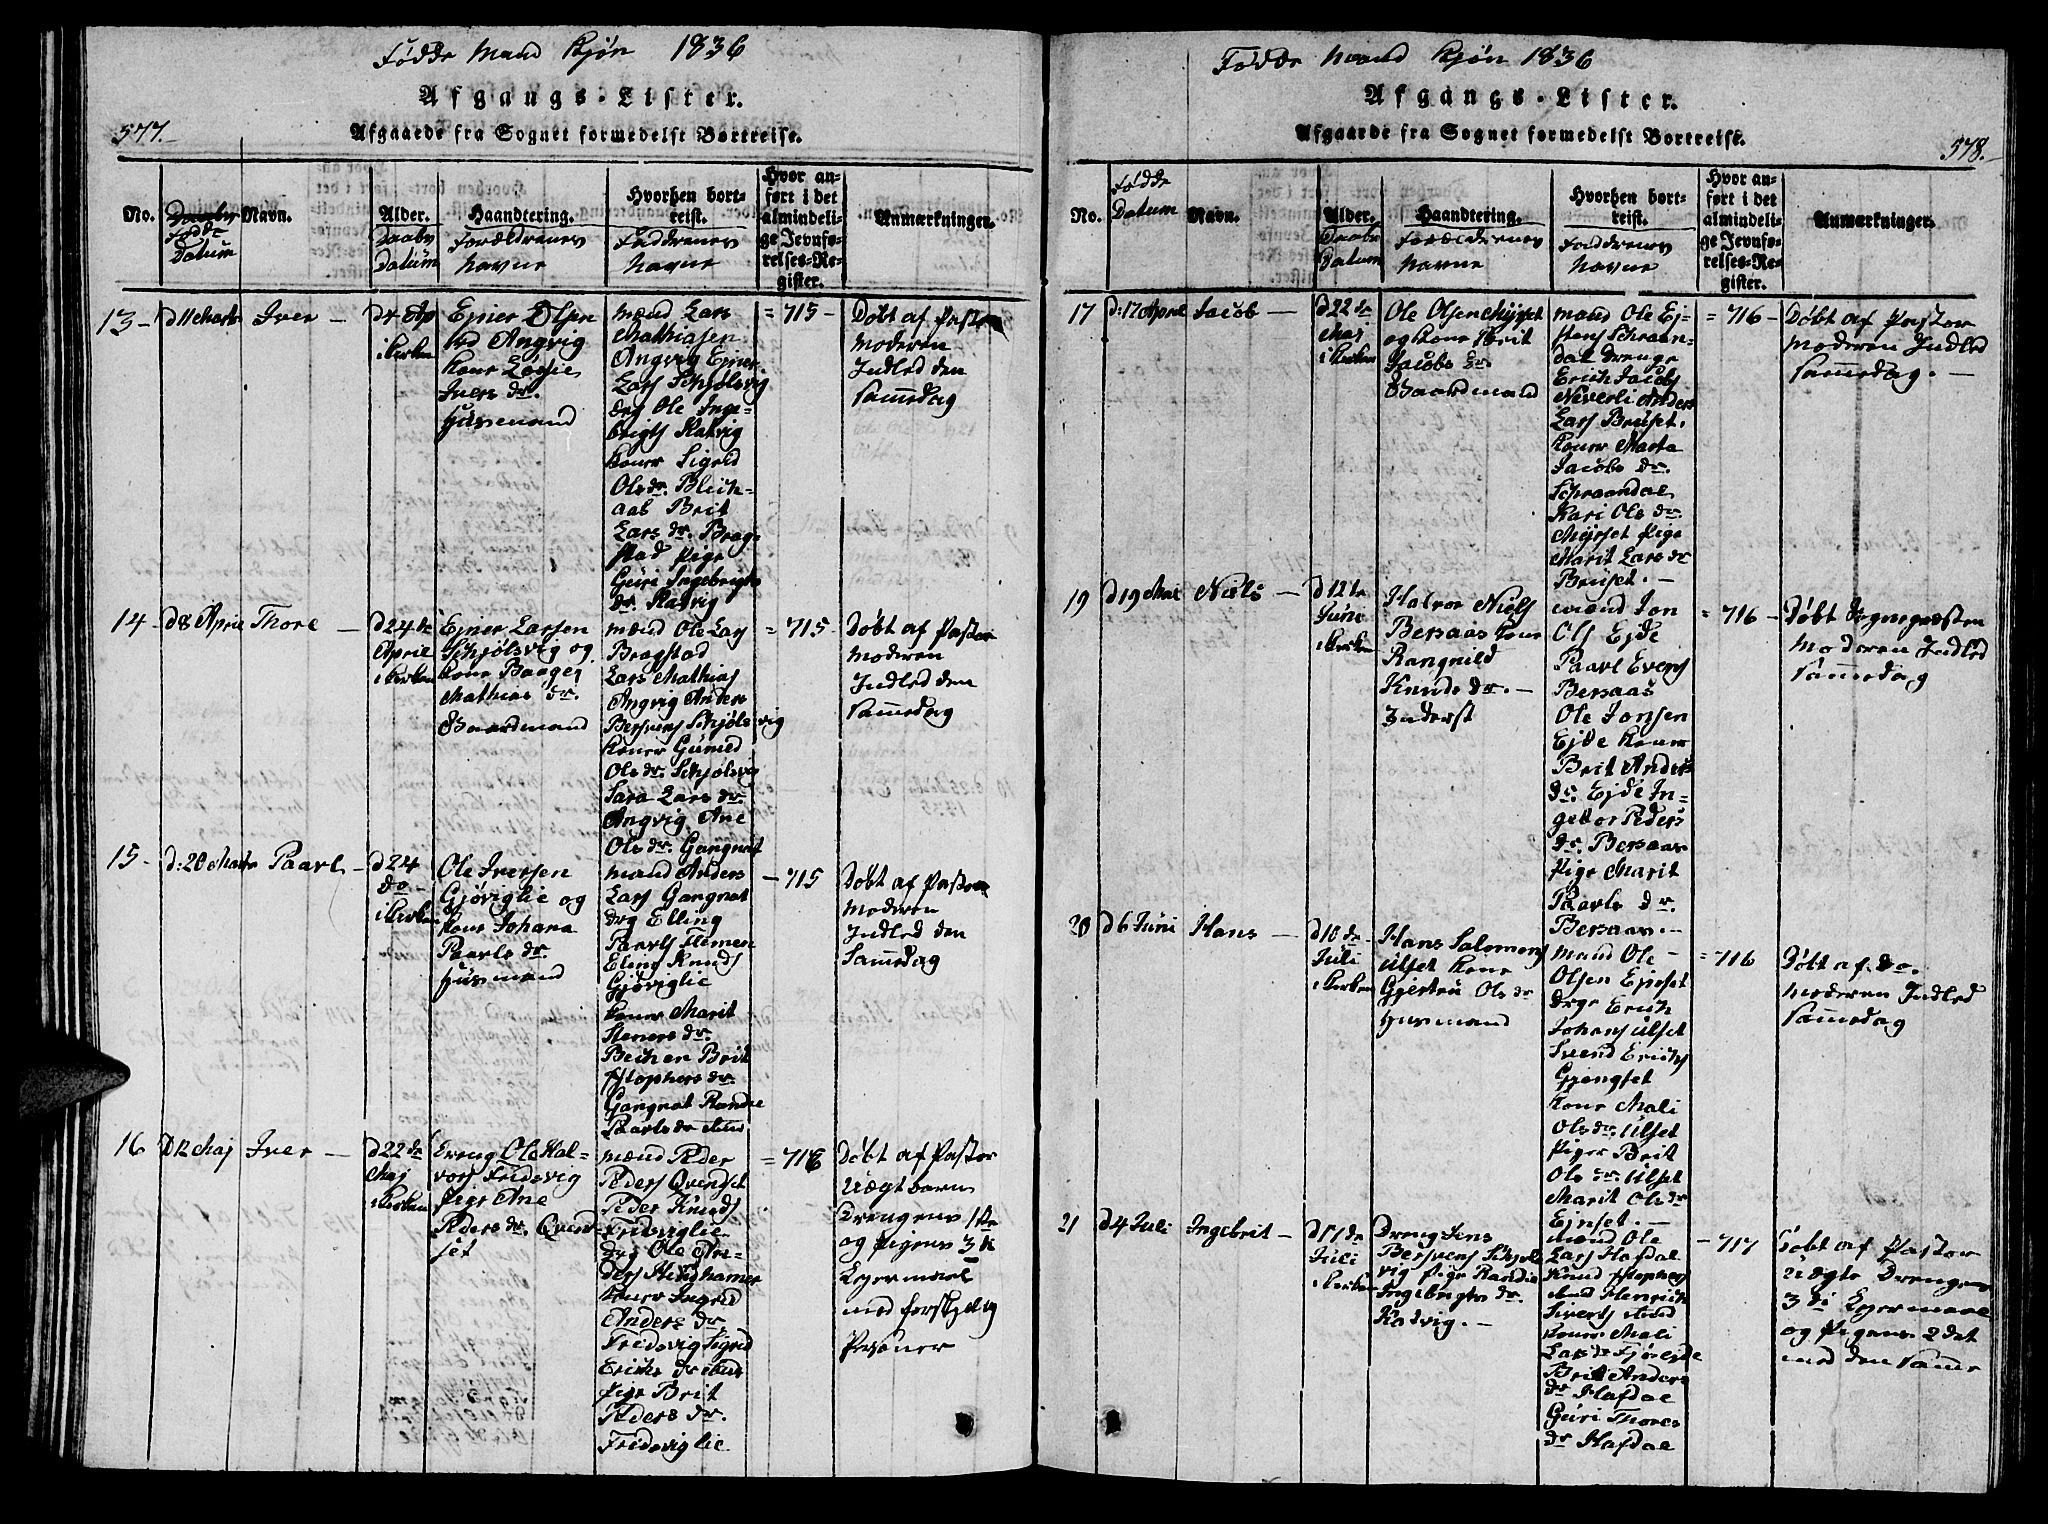 Fødde Mand Kjøn 1836
Afgangs-Lister.
577.
Afgaaede fra Sognet formedelst Bortreise.
No.
Fødde
Datum
Navn.
Alder.
Daabs
Datum
Haandtering.
Forældrenes
Navne
Hvorhen bort-
reist.
Faddrenes
Navne
Hvor an-
ført i det
almindeli-
ge Jevnfø-
relses-Re-
gister.
Anmærkninger.
13 -
d 11 Marts
Iver -
d 4 Ap
i Kirken
Ejner Olsen
Angvig
Kone
Ivers dr.
Husmand
mænd Lars
Mathiasen
Angvig Ejner
Lars Schjølsvig
drg Ole Inge-
brigts Katvig
koner Sigrid
Ols dr. Blich-
aab Brit
Lars dr. Brag-
stad Pige
Guri Ingebrigts
dr. Katvig
= 715 -
Døbt af Pastor
Moderen
Indled den
samedag
14 -
d 8 Aprie
Thore -
d 24 de
Aprie
i Kirken
Ejner Larsen
Schjølsvig og
kone
Mathias dr.
Gaardmand
mænd Ole Lars
Bragstad
Lars Mathias
Angvig Anders
Schjølsvig
koner Guned
Ols dr. Schjølsvig
Sara Lars dr.
Angvig Ane
Ols dr. Gangnat
= 715 -
Døbt af Pastor
Moderen
Indled den
samedag
15 -
d: 20 Marts
Paarl -
d 24
do -
i Kirken
Ole Iversen
Gjøviglie og
kone Johana
Paarls dr.
Husmand
mænd Anders
Lars Gangnat
drg Elling
Paarls Flemen
Knuds
Gjøviglie
koner Marit
Steners dr.
Brit
dr.
Gangnat
Paarls dr
- 715
Døbt af Pastor
Moderen
Indled den
Samedag
16
D 12 Maj
Iver -
d 22 de
Maj
i Kirken
Dreng Ole Hal-
vors Fridsvig
Pige Ane
Peders dr. Qvend-
set
mænd Peder
Peders Qvendset
Peder Knuds
Fridsviglie
drg Ole
koner Ingrid
Anders dr
Fridsvig Sigrid
dr
Pige Brit
Peders dr.
Fridsviglie
= 716
Døbt af Pastor
Uægt barn
Drengens 1ste
og Pigens 3 die
Lejermaal
med forskjelig
Personer
Fødde Mand Kjøn 1836
Afgangs-Lister.
Afgaaede fra Sognet formedelst Bortreise.
578.
No.
Fødde
Datum
Navn.
Alder.
Daabs
Datum
Haandtering.
Forældrenes
Navne
Hvorhen bort-
reist.
Faddrenes
Navne
Hvor an-
ført i det
almindeli-
ge Jevnfø-
relses-Re-
gister.
Anmærkninger.
17
d: 17 Aprie
Jacob -
d 22 de
Maj
i Kirken
Ole Olsen
og kone Brit
Jacobs dr.
Gaardmand
mænd Ole Ej-
Schraan-
dal Drenge
Erich Jacobs
Neverli Anders
Lars Bruset.
koner Marta
Jacobs dr.
Schraandal
Kari Ols dr.
Myrset Pige
Marit Lars dr
Bruset. -
= 716 -
Døbt af Pastor
Moderen Indled
samedag. -
19
d 19 Mai
Niels -
d 12 te
Juni
i Kirken
Halvor Niels
Bersaas kone
Rangnild
Knuds dr. -
Inderst
mænd Jon
Ols Ejde
Paarl Evens
Bersaas
Ole Jonsen
Ejde koner
Brit Anders
dr. Ejde In-
gebor Peders
dr. Bersaas
Pige Marit
Paarls dr.
Bersaas. -
= 716 -
Døbt Sognepresten
Moderen Indled
samedag
20
d 6 Juni
Hans -
d 10 de
Juli
i Kirken
Hans Salomons
Ulset kone
Gjertru Ols dr
Husmand
mænd Ole -
Olsen Ejnset
drge Erich
Johans Ulset
Svend Erichs
Gjengset
kone Mali
Ols dr. Ulset
Piger Brit
Ols dr. Ulset
Marit Ols dr
Ejnset. -
= 716
Døbt af. do.
Moderen Indled
samedag
21
d 4 Juli
Ingebrit -
d 17 de
Juli
i Kirken
Dreng Jens
Schjøls-
vig Pige Randi
Ingebrigts dr.
Katvig. -
mænd Ole
Lars Hafdal
Knud
Henrich
Siverts
koner Mali
Lars dr
Brit Anders
dr Hafdal
Guri Thores
dr Hafdal
- 717
Døbt af Pastor
Uægte Drengens
3 di Lejermaal
og Pigens 2 det
med den samme